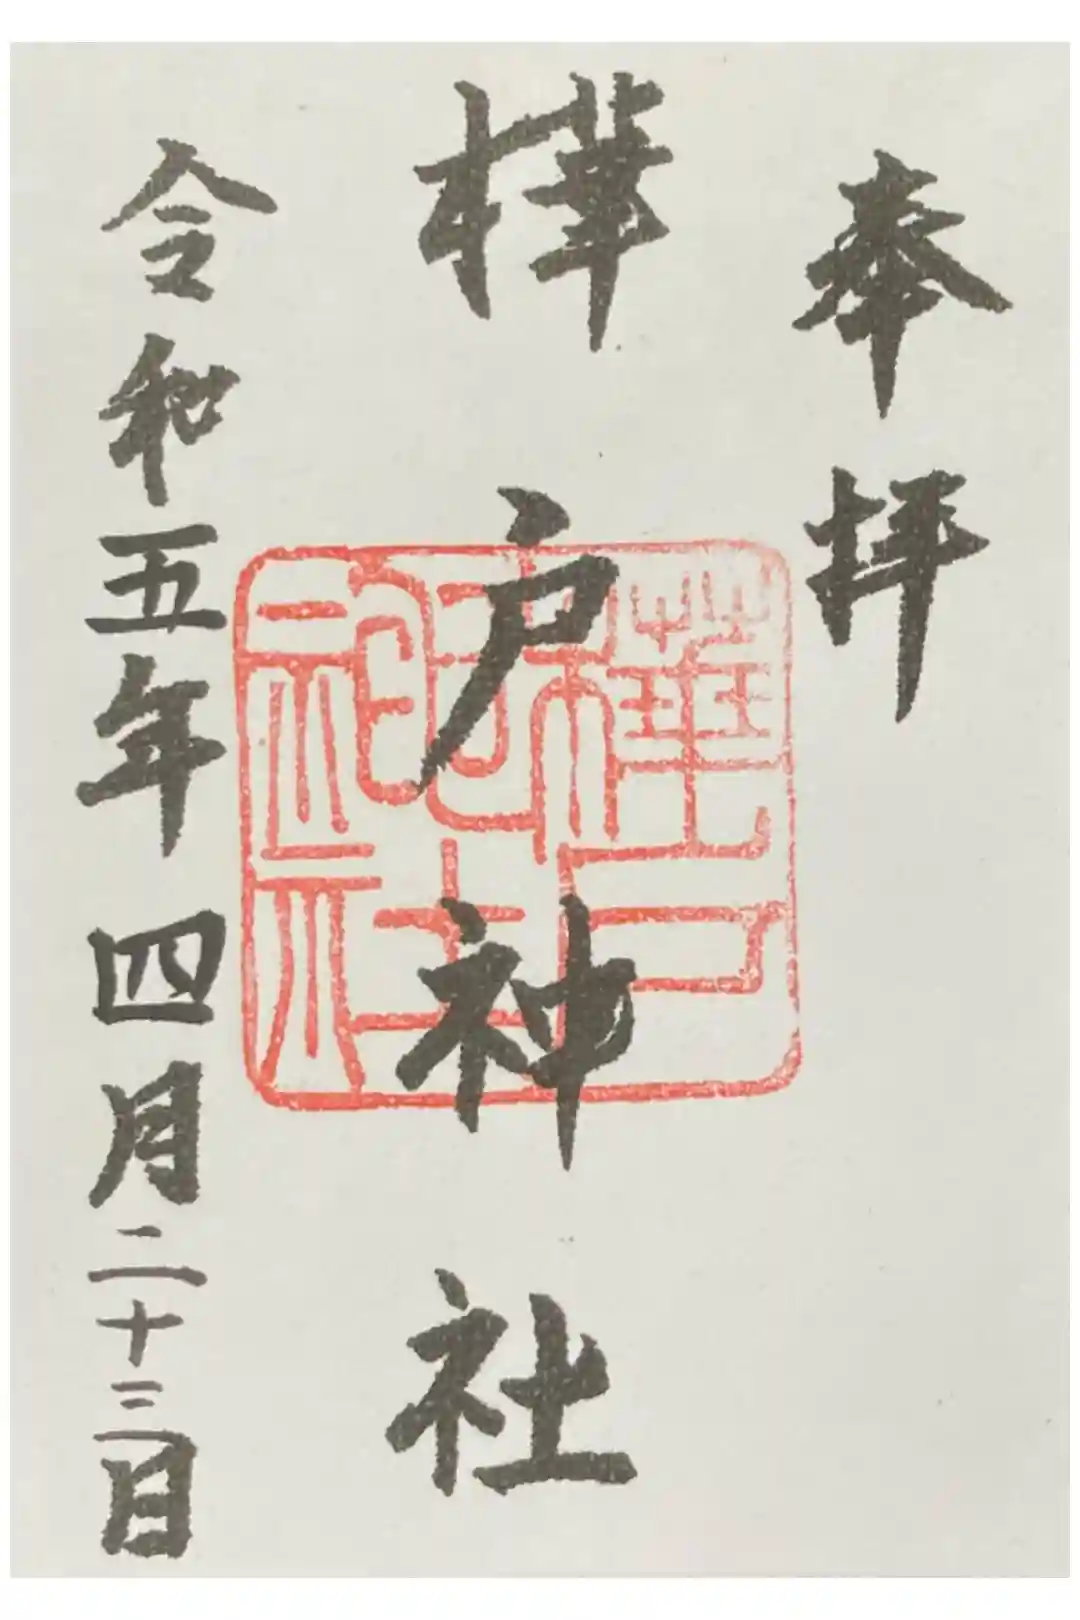 奉拝
樺戸神社
令和五年四月二十三日
樺戸
神社
神社